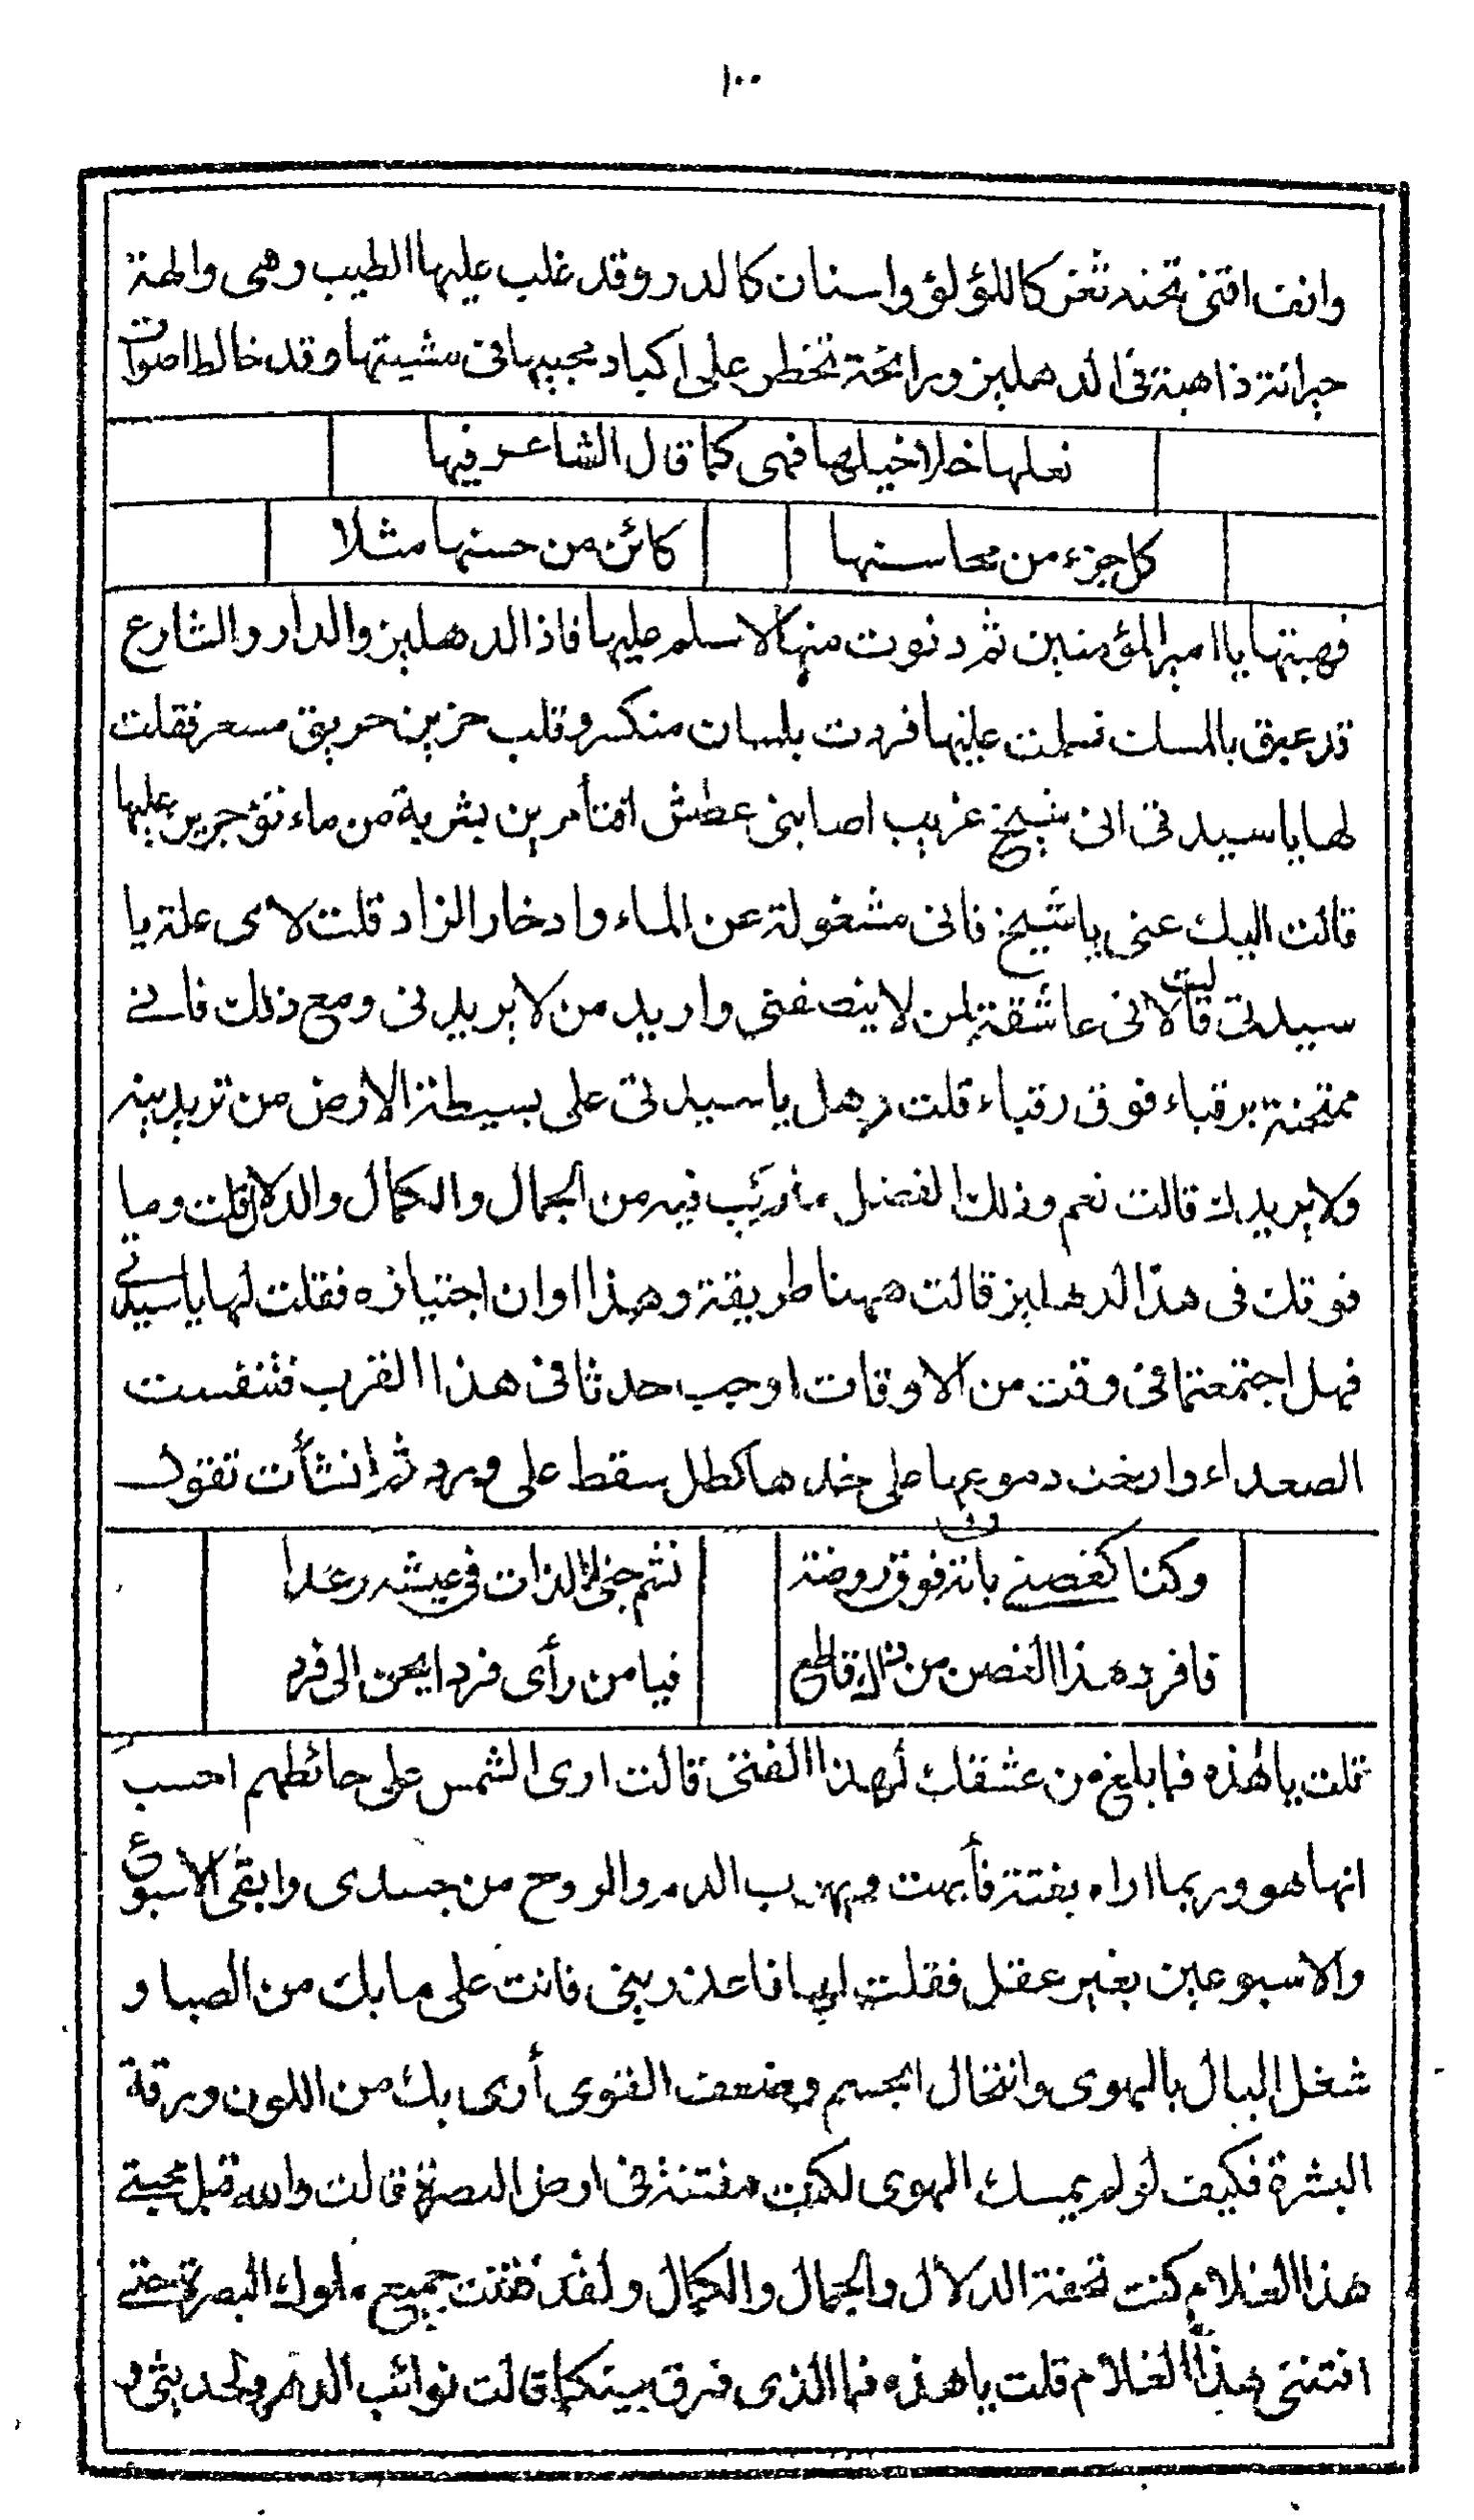 ١٠٠
وانف اقنى تحته ثغر كاللؤلؤ واسنان كالدر وقد غلب عليها الطيب وهى والهة
حيرانة ذاهبة فى الدهليز ورائحة تخطر على اكباد محبيها فى مشيتها وقد خالط اصوات
نعلها خلاخيلها فهى كما قال الشاعر فيها
كل جزء من محاسنها كائن من حسنها مثلا
فهبتها يا امير المؤمنين ثم دنوت منها لاسلم عليها فاذا الدهليز والدار والشارع
قد عبق بالمسك فسلمت عليها فردت بلسان منكسر وقلب حزين حريق مسعر فقلت
لها يا سيدتى انى شيخ غريب اصابنى عطش افتأمرين بشربة من ماء تؤجرين عليها
قالت اليك عنى يا شيخ فانى مشغولة عن الماء وادخار الزاد قلت لاى علة يا
سيدتى قالت لانى عاشقة لمن لا ينصفنى واريد من لا يريدنى ومع ذلك فانى
ممتحنة برقباء فوق رقباء قلت وهل يا سيدتى على بسيطة الارض من تريدينه
ولا يريدك قالت نعم وذلك لفضل ما ركب فيه من الجمال والكمال والدلال قلت وما
وقوفك فى هذا الدهليز قالت ههنا طريقة وهذا اوان اجتيازه فقلت لها يا سيدتى
فهل اجتمعتما فى وقت من الاوقات اوجب حدثا فى هذا القرب فتنفست
الصعداء وارخت دموعها على خدها كطل سقط على ورد ثم انشأت تقول
وكنا كغصنى بانة فوق روضة نشم جنى اللذات فى عيشه رغدا
فافرد هذا الغصن من ذاك قاطع فيا من رأى فردا يحن الى فرد
قلت يا هذه فما بلغ من عشقك لهذا الفتى قالت ارى الشمس على حائطهم احسب
انها هو وربما اراه بغتة فأبهت ويهرب الدم والروح من جسدى وابقى الاسبوع
والاسبوعين بغير عقل فقلت لها فاعذرينى فانت على ما بك من الصبا و
شغل البال بالهوى وانتحال الجسم وضعف القوى أرى بك من اللون ورقة
البشرة فكيف لو لم يمسك الهوى لكنت مفتنة فى ارض البصرة قالت والله قبل محبتى
هذا الغلام كنت تحفة الدلال والجمال والكمال ولقد فتنت جميع ملوك البصرة حتى
افتننى هذا الغلام قلت يا هذه فما الذى فرق بينكما قالت نوائب الدهر ولحديثى و